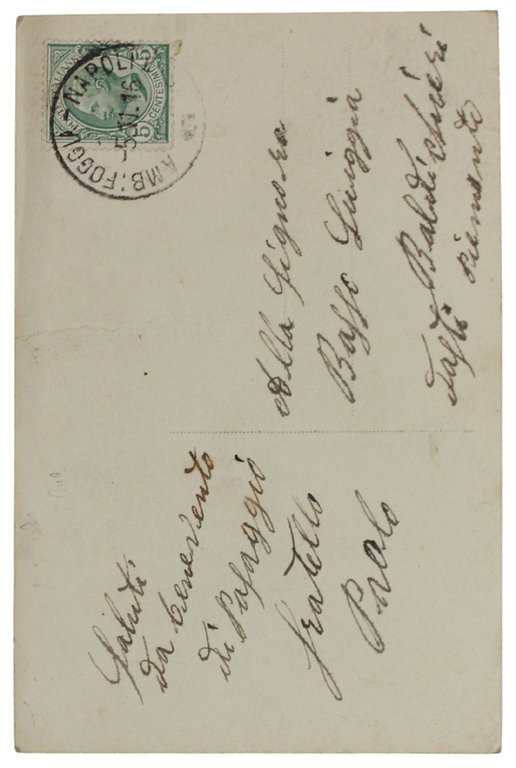 AMB: FOGGIA - NAPOLI
5.11.16
POSTE ITALIANE
CENTES 5
Alla Signora
Basso Luiggia
Baldichieri
d'asti
Piemonte
Saluti
da benevento
di Pasaggio
fratello
Paolo